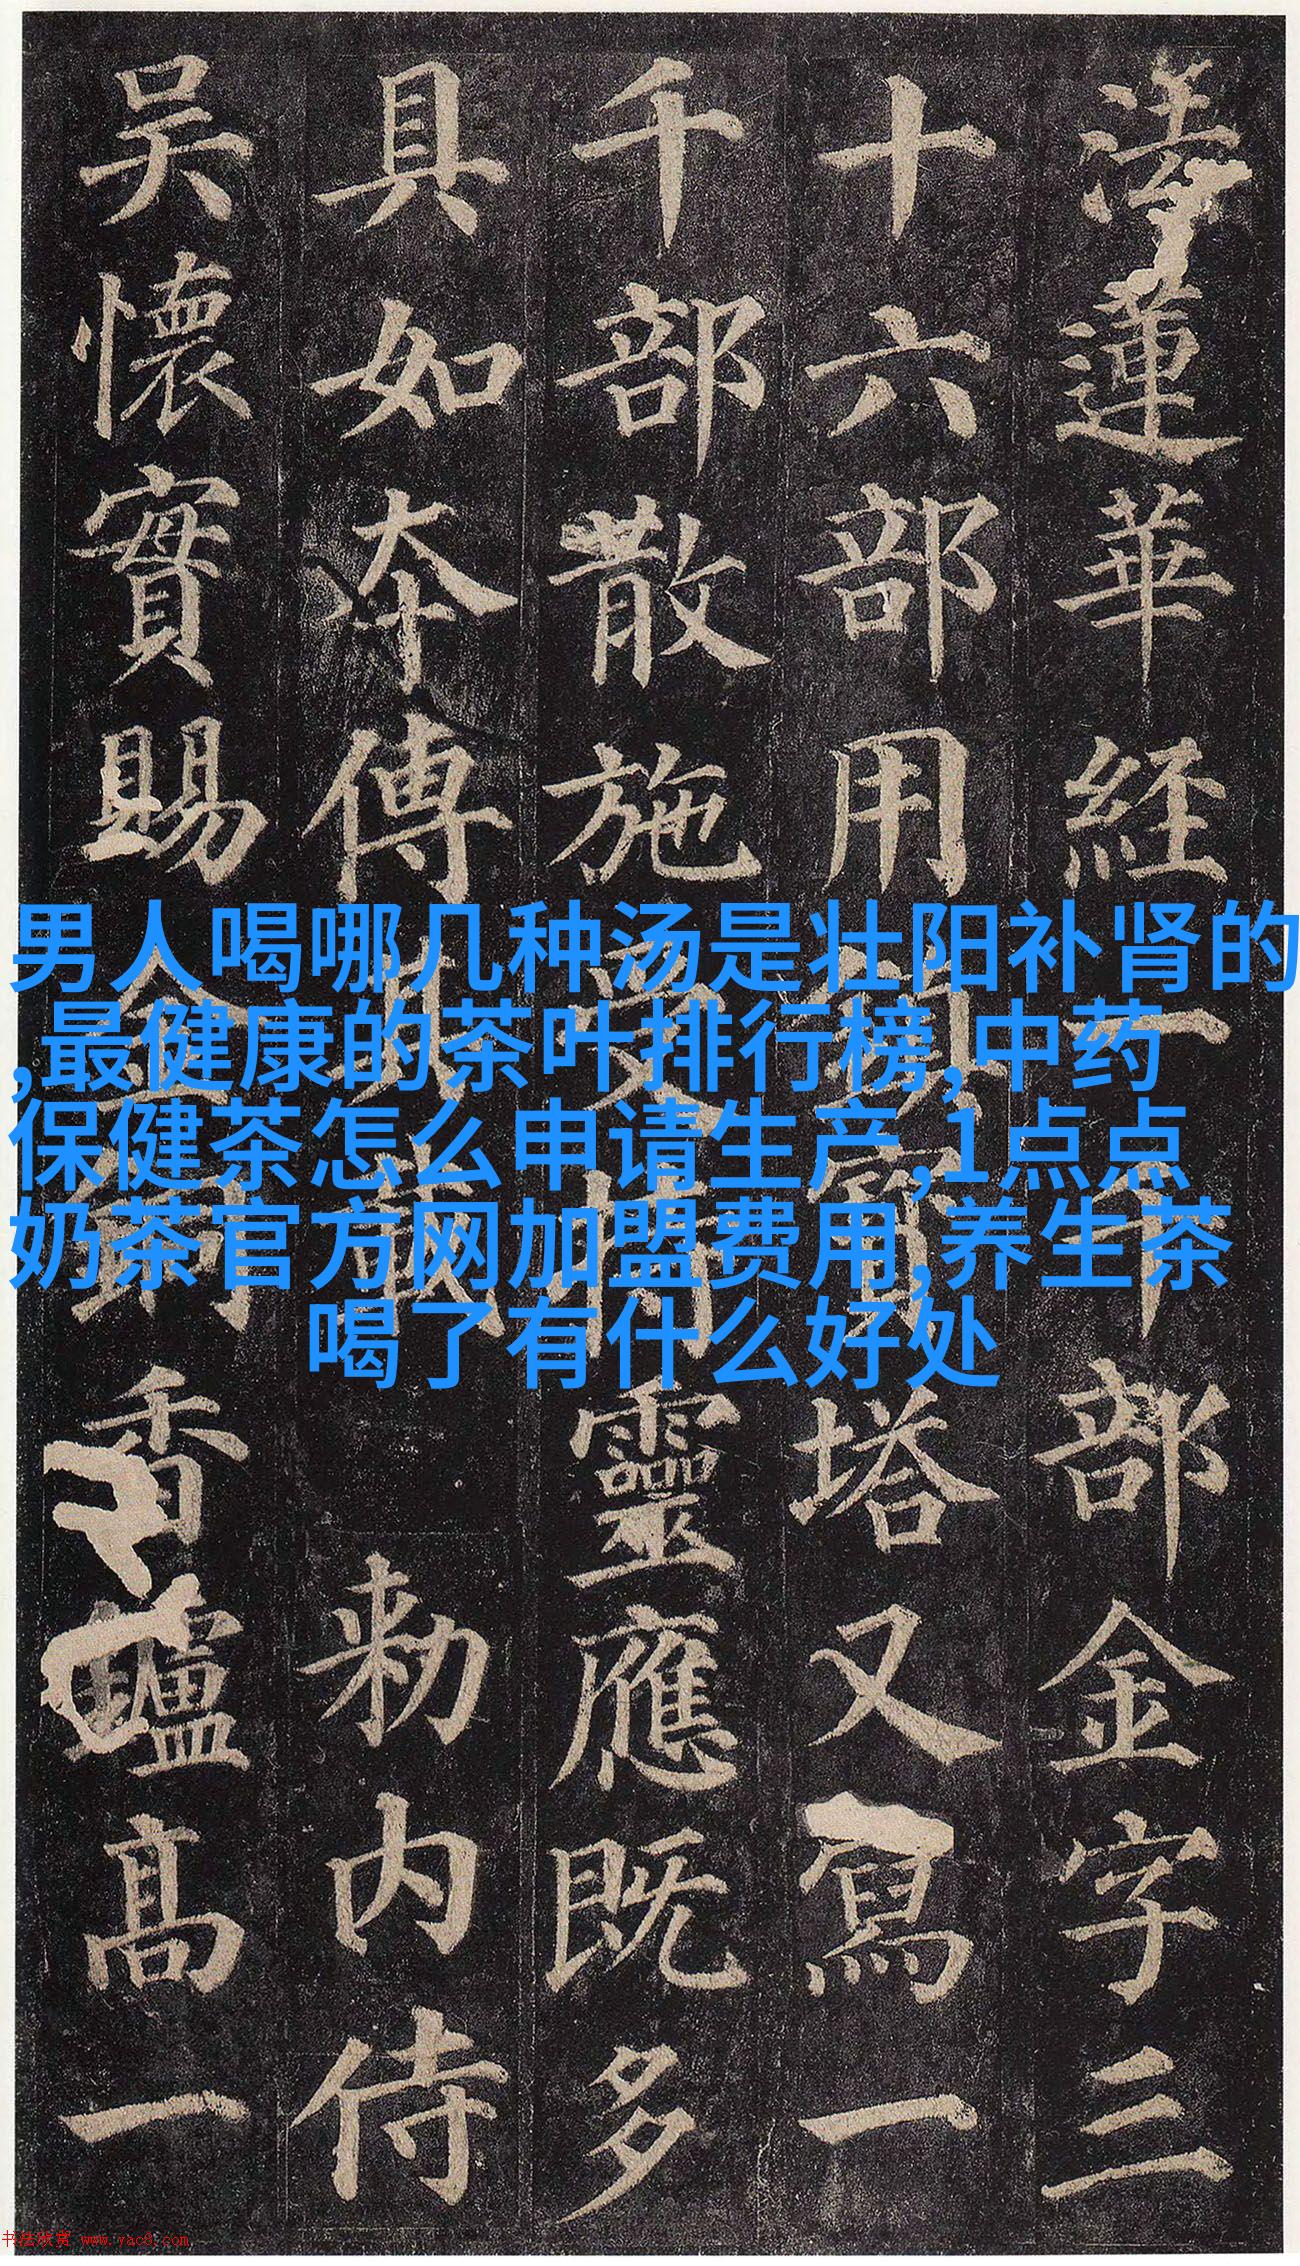 法蓮華経一千部金字三
十六部用鎮寶塔又寫一
千部散施受持靈應既多
具如本傳其載勅内侍
吳懷實賜金銅香鑪高一
男人喝哪几种汤是壮阳补肾的
,最健康的茶叶排行榜,中药
保健茶怎么申请生产,1点点
奶茶官方网加盟费用,养生茶
喝了有什么好处
书法欣赏 www.yac8.com